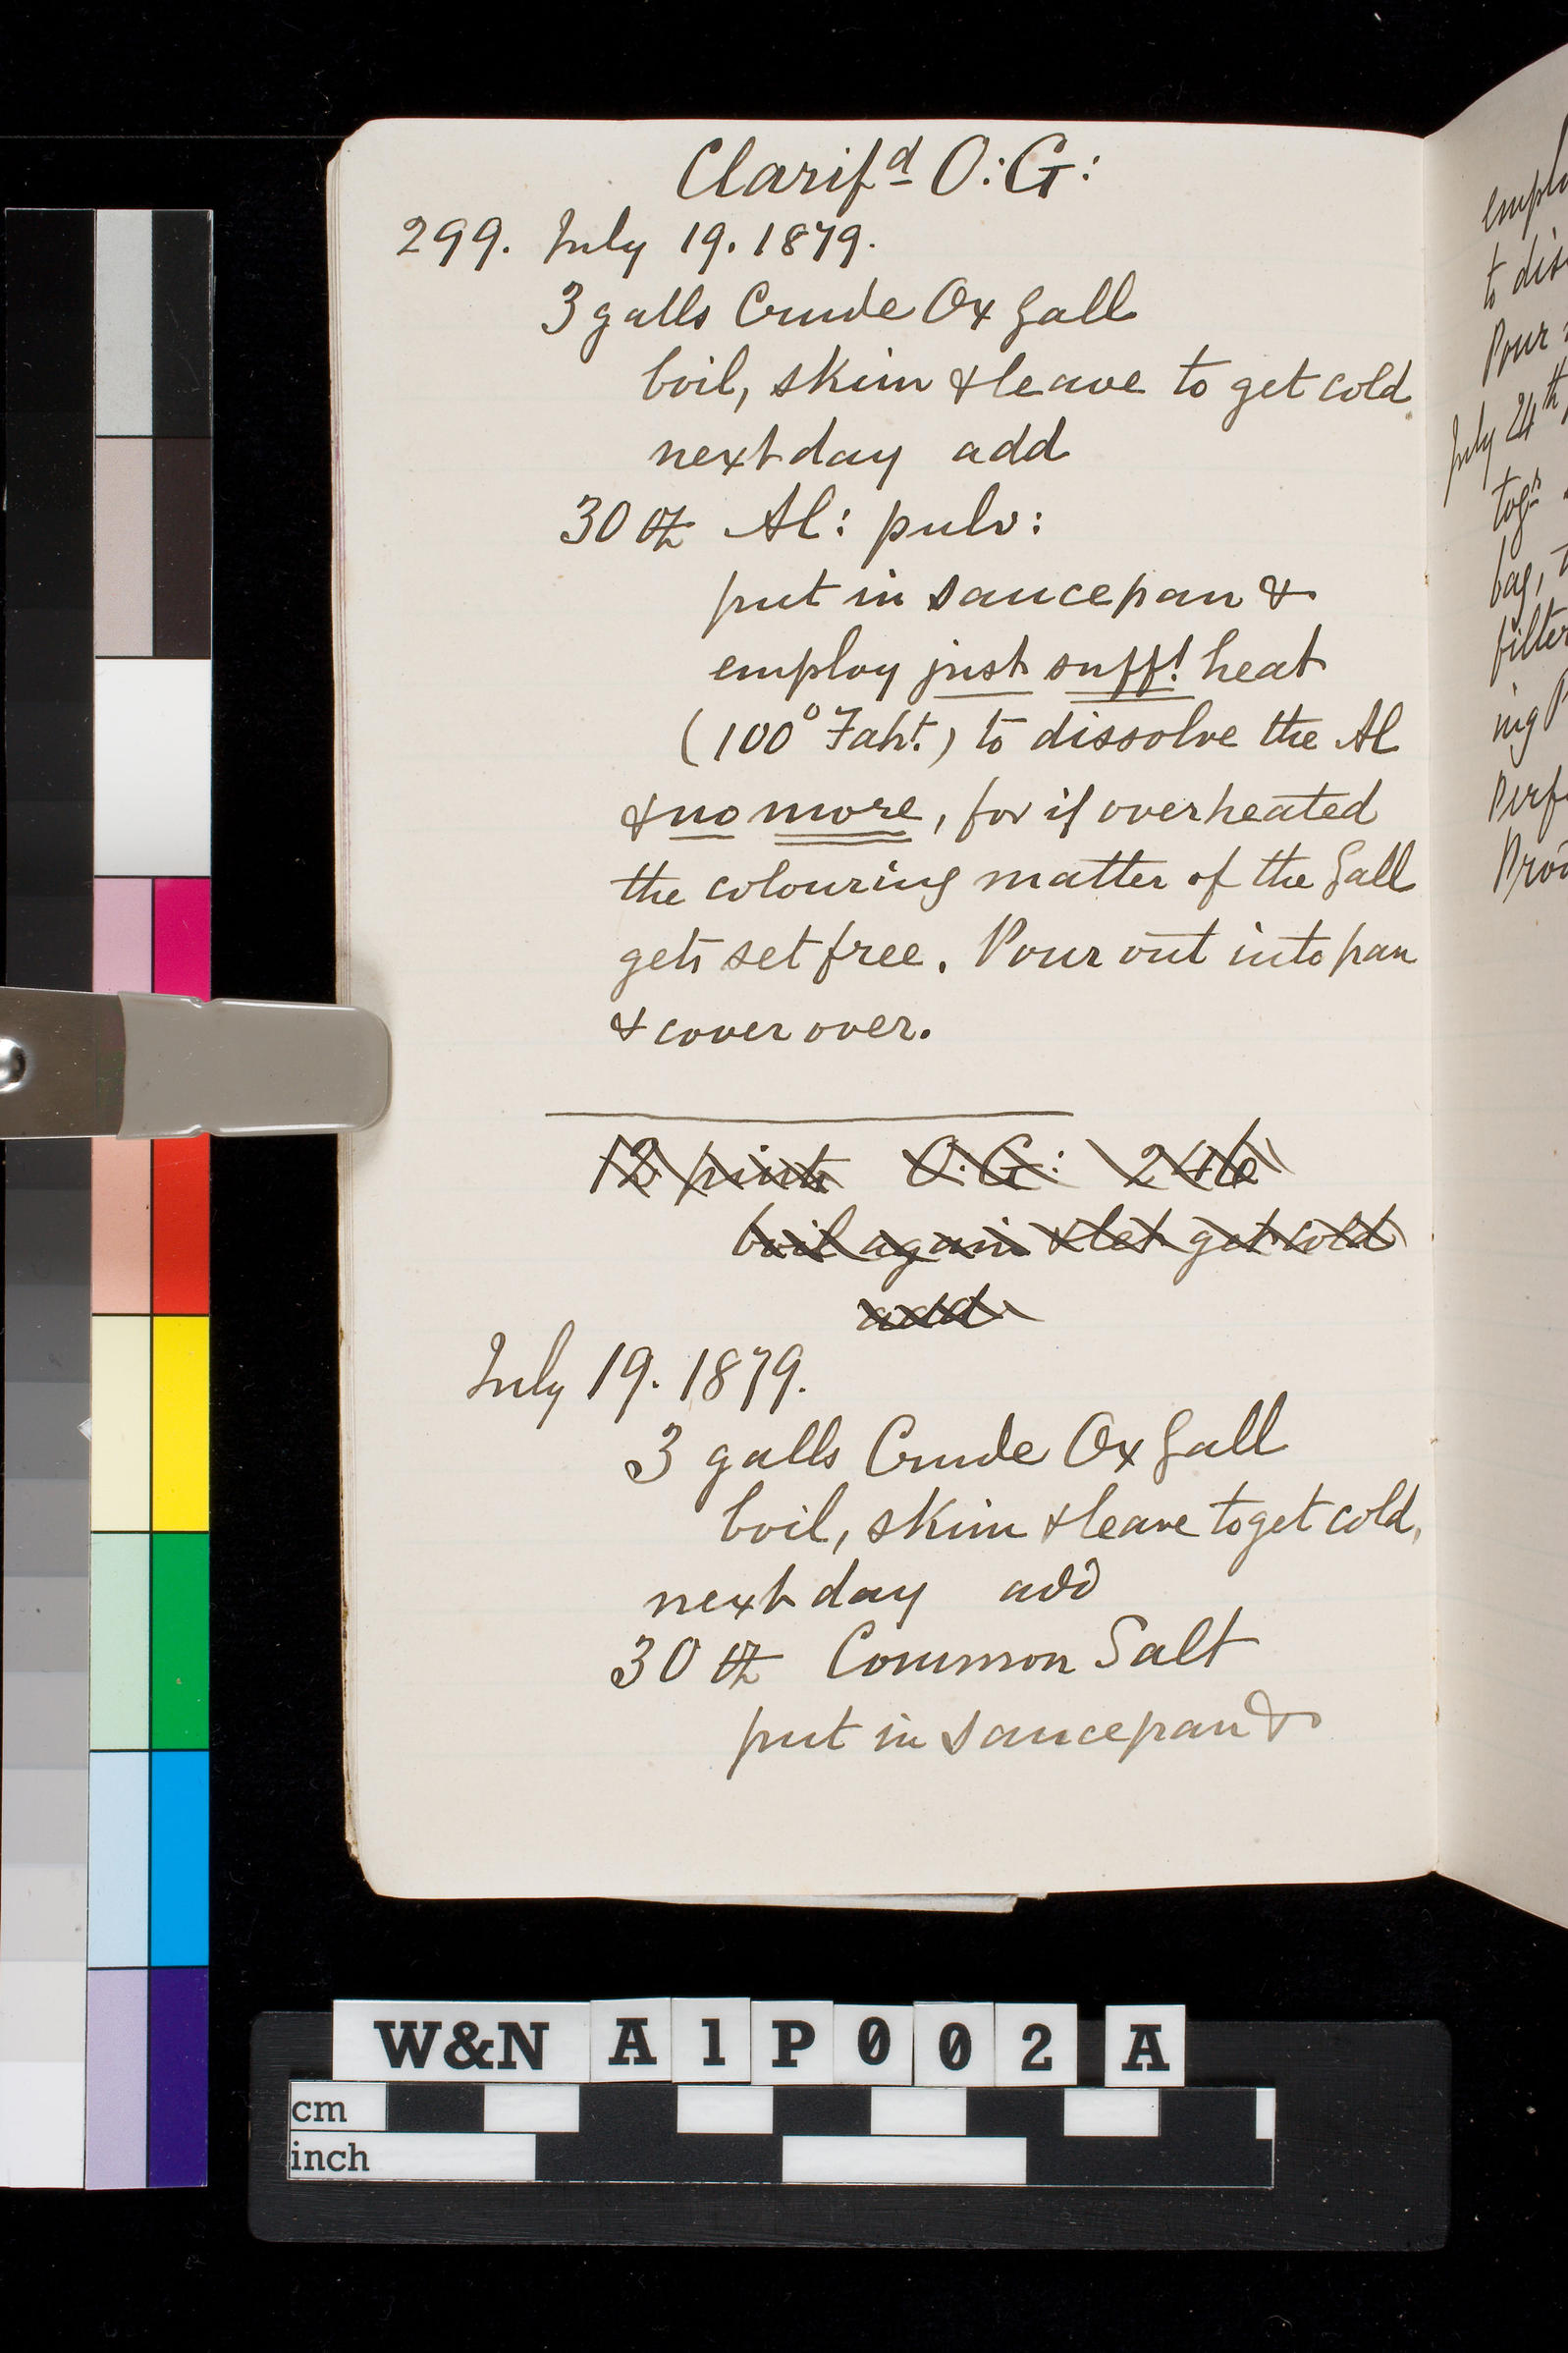 Clarifd O:G:
299. July 19. 1879.
3 galls Crude Ox Gall
boil, skim & leave to get cold
next day add
30 oz Al: pulv:
put in saucepan &
employ just sufft heat
(100° Faht.) to dissolve the Al
& no more, for if overheated
the colouring matter of the Gall
gets set free. Pour out into pan
& cover over.
O.G: 246
boil again & let get cold
add
July 19. 1879.
3 galls Crude Ox Gall
boil, skim & leave to get cold,
next day add
30 oz Common Salt
put in saucepan &
to dis
Pour
July 24th
togr
bag,
filter
ing P
Perf
W&N A1P002 A
cm
inch